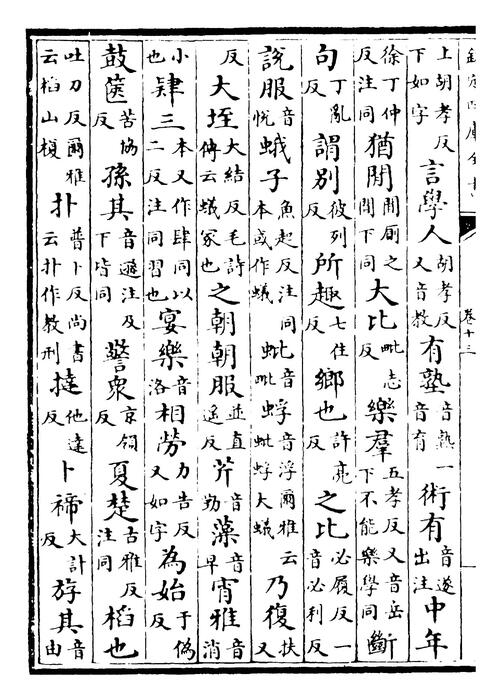 欽定四庫全書
卷十三
上胡孝反下如字言學人胡孝反又音教有塾音熟一音育術有音遂出注中年
徐丁仲反注同猶閒閒厠之閒下同大比毗志反樂羣五孝反又音岳下不能樂學同斷
句丁亂反謂别彼列反所趣七住反鄉也許亮反之比必履反一音必利反
說服音悅蛾子魚起反注同本或作蟻蚍音毗蜉音浮爾雅云蚍蜉大蟻乃復扶又
反大垤大結反毛詩傳云蟻冢也之朝朝服並直遥反芹音勤藻音早宵雅音消
小也肄三本又作肆同以二反注同習也宴樂音洛相勞力告反又如字為始于偽反
鼓篋苦協反孫其音遜注及下皆同警衆京領反夏楚古雅反注同槄也
吐刀反爾雅云槄山榎扑普卜反尚書云扑作教刑撻他達反卜禘大計反游其音由